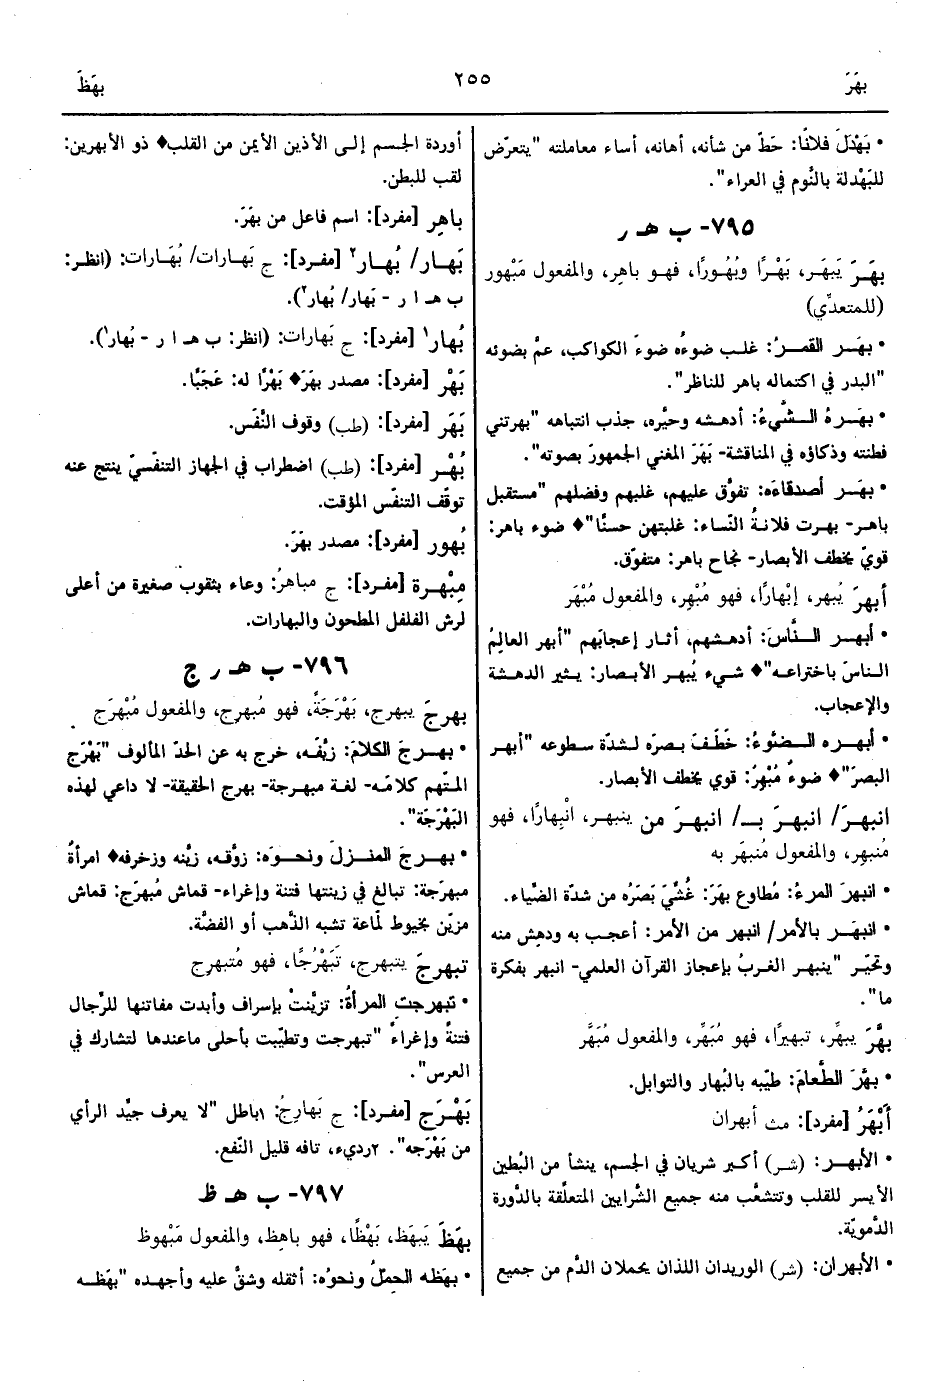 بهَرَ
٢٥٥
بهَظَ
• بَهْدَلَ فلانًا: حَطّ من شأنه، أهانه، أساء معاملته "يتعرّض
للبَهْدلة بالنُّوم في العراء".
٧٩٥- ب هـ ر
بهَرَ يَبهَر، بَهْرًا وبُهُورًا، فهو باهِر، والمفعول مَبْهور
(للمتعدِّي)
• بهَر القمرُ: غلب ضوءُه ضوءَ الكواكب، عمّ بضوئه
"البدر في اكتماله باهر للناظر".
• بهَرهُ الشَّيءُ: أدهشه وحيَّره، جذب انتباهه "بهرتني
فطنته وذكاؤه في المناقشة- بَهَرَ المغني الجمهورَ بصوته".
• بهَر أصدقاءَه: تفوَّق عليهم، غلبهم وفضلهم "مستقبل
باهر- بهرت فلانةُ النّساء: غلبتهن حسنًا"♦ ضوء باهر:
قويّ يخطف الأبصار- نجاح باهر: متفوّق.
أبهرَ يُبهر، إبْهارًا، فهو مُبْهِر، والمفعول مُبْهَر
• أبهر النَّاسَ: أدهشهم، أثار إعجابَهم "أبهر العالِمُ
الناسَ باختراعه"♦ شيء يُبهر الأبصار: يثير الدهشة
والإعجاب.
• أبهره الضَّوْءُ: خَطَفَ بصرَه لشدّة سطوعه "أبهر
البصرَ"♦ ضوءٌ مُبْهِرٌ: قوي يخطف الأبصار.
انبهرَ/ انبهرَ بـ/ انبهرَ من ينبهر، انْبِهارًا، فهو
مُنبهِر، والمفعول مُنبهَر به
• انبهرَ المرءُ: مُطاوع بهَرَ: غُشّيَ بَصَرُه من شدّة الضّياء.
• انبهَر بالأمر/ انبهر من الأمر: أعجب به ودهِش منه
وتحيّر "ينبهر الغربُ بإعجاز القرآن العلمي- انبهر بفكرة
ما".
بهَّرَ يبهِّر، تبهيرًا، فهو مُبَهِّر، والمفعول مُبَهَّر
• بهَّرَ الطَّعامَ: طيّبه بالبُهار والتوابل.
أَبْهَرُ [مفرد]: مث أبهران
• الأبهر: (شر) أكبر شريان في الجسم، ينشأ من البُطين
الأيسر للقلب وتتشعّب منه جميع الشّرايين المتعلّقة بالدّورة
الدّمويّة.
• الأبهران: (شر) الوريدان اللذان يحملان الدّم من جميع
أوردة الجسم إلى الأذين الأيمن من القلب♦ ذو الأبهرين:
لقب للبطن.
باهِر [مفرد]: اسم فاعل من بهَرَ.
بَهار/ بُهار٢ [مفرد]: ج بَهارات/ بُهَارات: (انظر:
ب هـ ا ر - بَهار/ بُهار٢).
بُهار١ [مفرد]: ج بَهارات: (انظر: ب هـ ا ر - بُهار١).
بَهْر [مفرد]: مصدر بهَرَ♦ بَهْرًا له: عَجَبًا.
بَهَر [مفرد]: (طب) وقوف النَّفَس.
بُهْر [مفرد]: (طب) اضطراب في الجهاز التنفسيّ ينتج عنه
توقّف التنفّس المؤقت.
بُهور [مفرد]: مصدر بهَرَ.
مِبْهرة [مفرد]: ج مباهرُ: وعاء بثقوب صغيرة من أعلى
لرش الفلفل المطحون والبهارات.
٧٩٦- ب هـ ر ج
بهرجَ يبهرج، بَهْرَجَةً، فهو مُبهرِج، والمفعول مُبْهرَج
• بهرجَ الكلامَ: زيّفه، خرج به عن الحدّ المألوف "بَهْرَج
المتّهم كلامَه- لغة مبهرجة- بهرج الحقيقة- لا داعي لهذه
البَهْرَجَة".
• بهرجَ المنزلَ ونحوَه: زوّقه، زيّنه وزخرفه♦ امرأةٌ
مبهرَجة: تبالغ في زينتها فتنة وإغراء- قماش مُبهرَج: قماش
مزيّن بخيوط لمّاعة تشبه الذَّهب أو الفضَّة.
تبهرجَ يتبهرج، تَبَهْرُجًا، فهو مُتبهرِج
• تبهرجت المرأةُ: تزيَّنتْ بإسراف وأبدت مفاتنها للرّجال
فتنةً وإغراءً "تبهرجت وتطيّبت بأحلى ماعندها لتشارك في
العرس".
بَهْرَج [مفرد]: ج بَهارِجُ: ١باطل "لا يعرف جيّد الرأي
من بَهْرَجه". ٢رديء، تافه قليل النّفع.
٧٩٧- ب هـ ظ
بهَظَ يَبهَظ، بَهْظًا، فهو باهِظ، والمفعول مَبْهوظ
• بهَظه الحِملُ ونحوُه: أثقله وشقّ عليه وأجهده "بهَظه